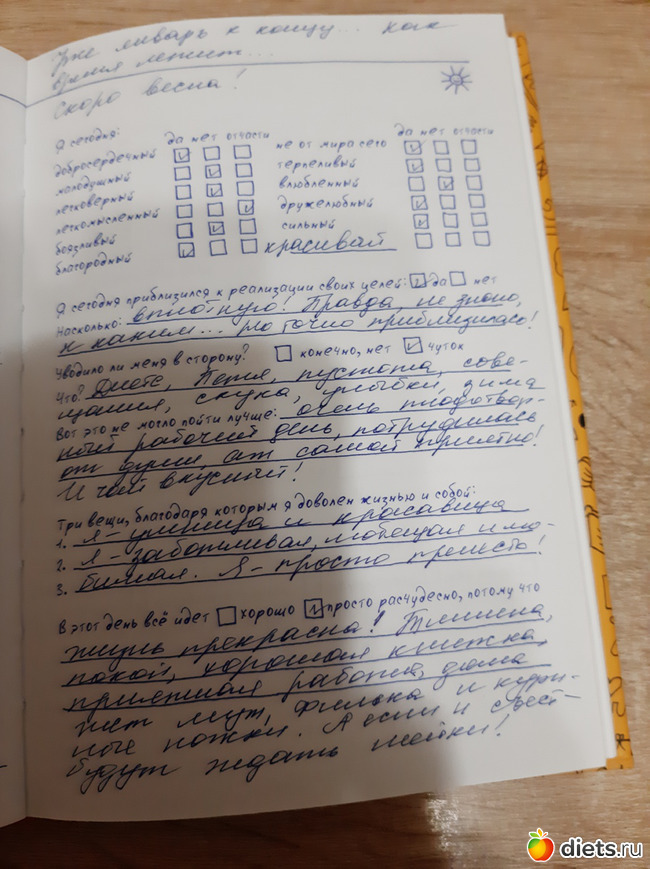 Уже январь к концу... как
время летит...
скоро весна!
Я сегодня: да нет отчасти
добросердечный
малодушный
легковерный
легкомысленный
боязливый
благородный
да нет отчасти
не от мира сего
терпеливый
влюбленный
дружелюбный
сильный
красивай
Я сегодня приблизился к реализации своих целей: да нет
Насколько: вплотную! Правда, не знаю,
к каким... Но точно приблизилась!
Уводило ли меня в сторону? конечно, нет чуток
Что? Диетс, Петя, пустота, сове-
щания, скука, улыбки, зима
Вот это не могло пойти лучше: очень плодотвор-
ный рабочий день, потрудилась
от души, аж самой приятно!
И чай вкусный!
Три вещи, благодаря которым я доволен жизнью и собой:
1. Я - умница и красавица
2. Я - заботливая, любящая и лю-
3. бимая. Я - просто прелесть!
В этот день всё идет хорошо просто расчудесно, потому что
жизнь прекрасна! Тишина,
покой, хорошая книжка,
приятная работа, дома
ждет муж, Филька и кури-
ные ножки. А если и
будут ждать
diets.ru